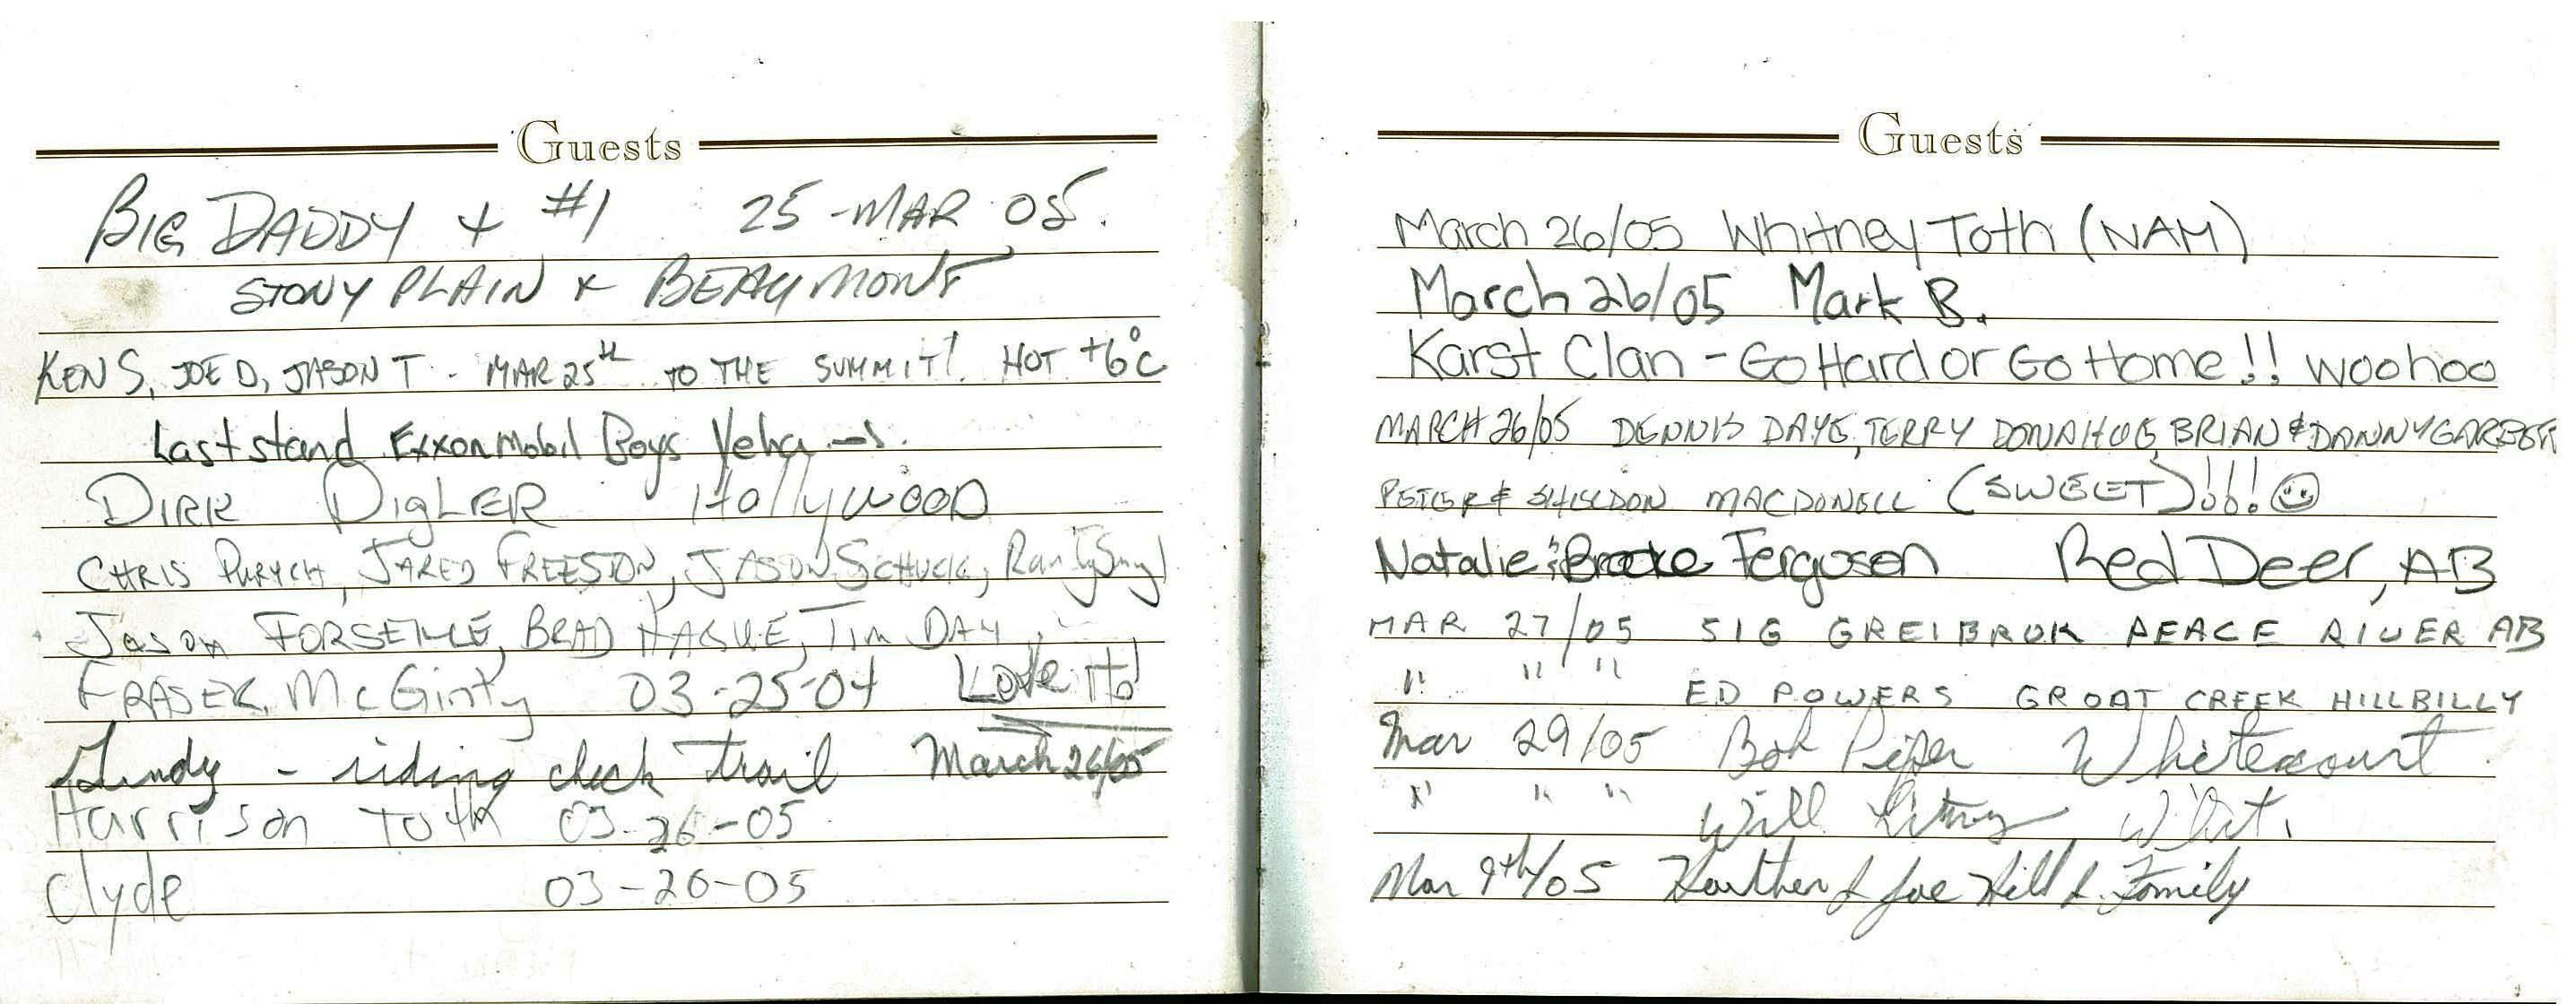 Guests
BIG DADDY + #1 25-MAR 05.
STONY PLAIN + BEAUMONT
KEN S, JOE D, JASON T. - MAR 25th TO THE SUMMIT! HOT +6°C
Last stand ExxonMobil Boys Yeha
DIRK DIGLER HollywOOD
CHRIS PURYCH, JARED FREESTON, JASON SCHUCK,
Jason FORSEILLE, BRAD HAGUE, Tim DAY
FRASER McGinty 03-25-04 Love it!
Lindy - riding check trail March 26/05
Harrison Toth 03-26-05
Clyde 03-26-05
Guests
March 26/05 Whitney Toth (NAM)
March 26/05 Mark B.
Karst Clan - Go Hard or Go Home!! woohoo
MARCH 26/05 DENNIS DAYE, TERRY DONAHUE, BRIAN & DANNY
PETER & SHELDON MACDONELL (SWEET)!!!
Natalie & Brooke Ferguson Red Deer, AB
MAR 27/05 SIG GREIBROK PEACE RIVER AB
" " " ED POWERS GROAT CREEK HILLBILLY
Mar 29/05 Bob Piper Whitecourt
" " " Will
Mar 9th/05 Heather & Joe Hill & Family